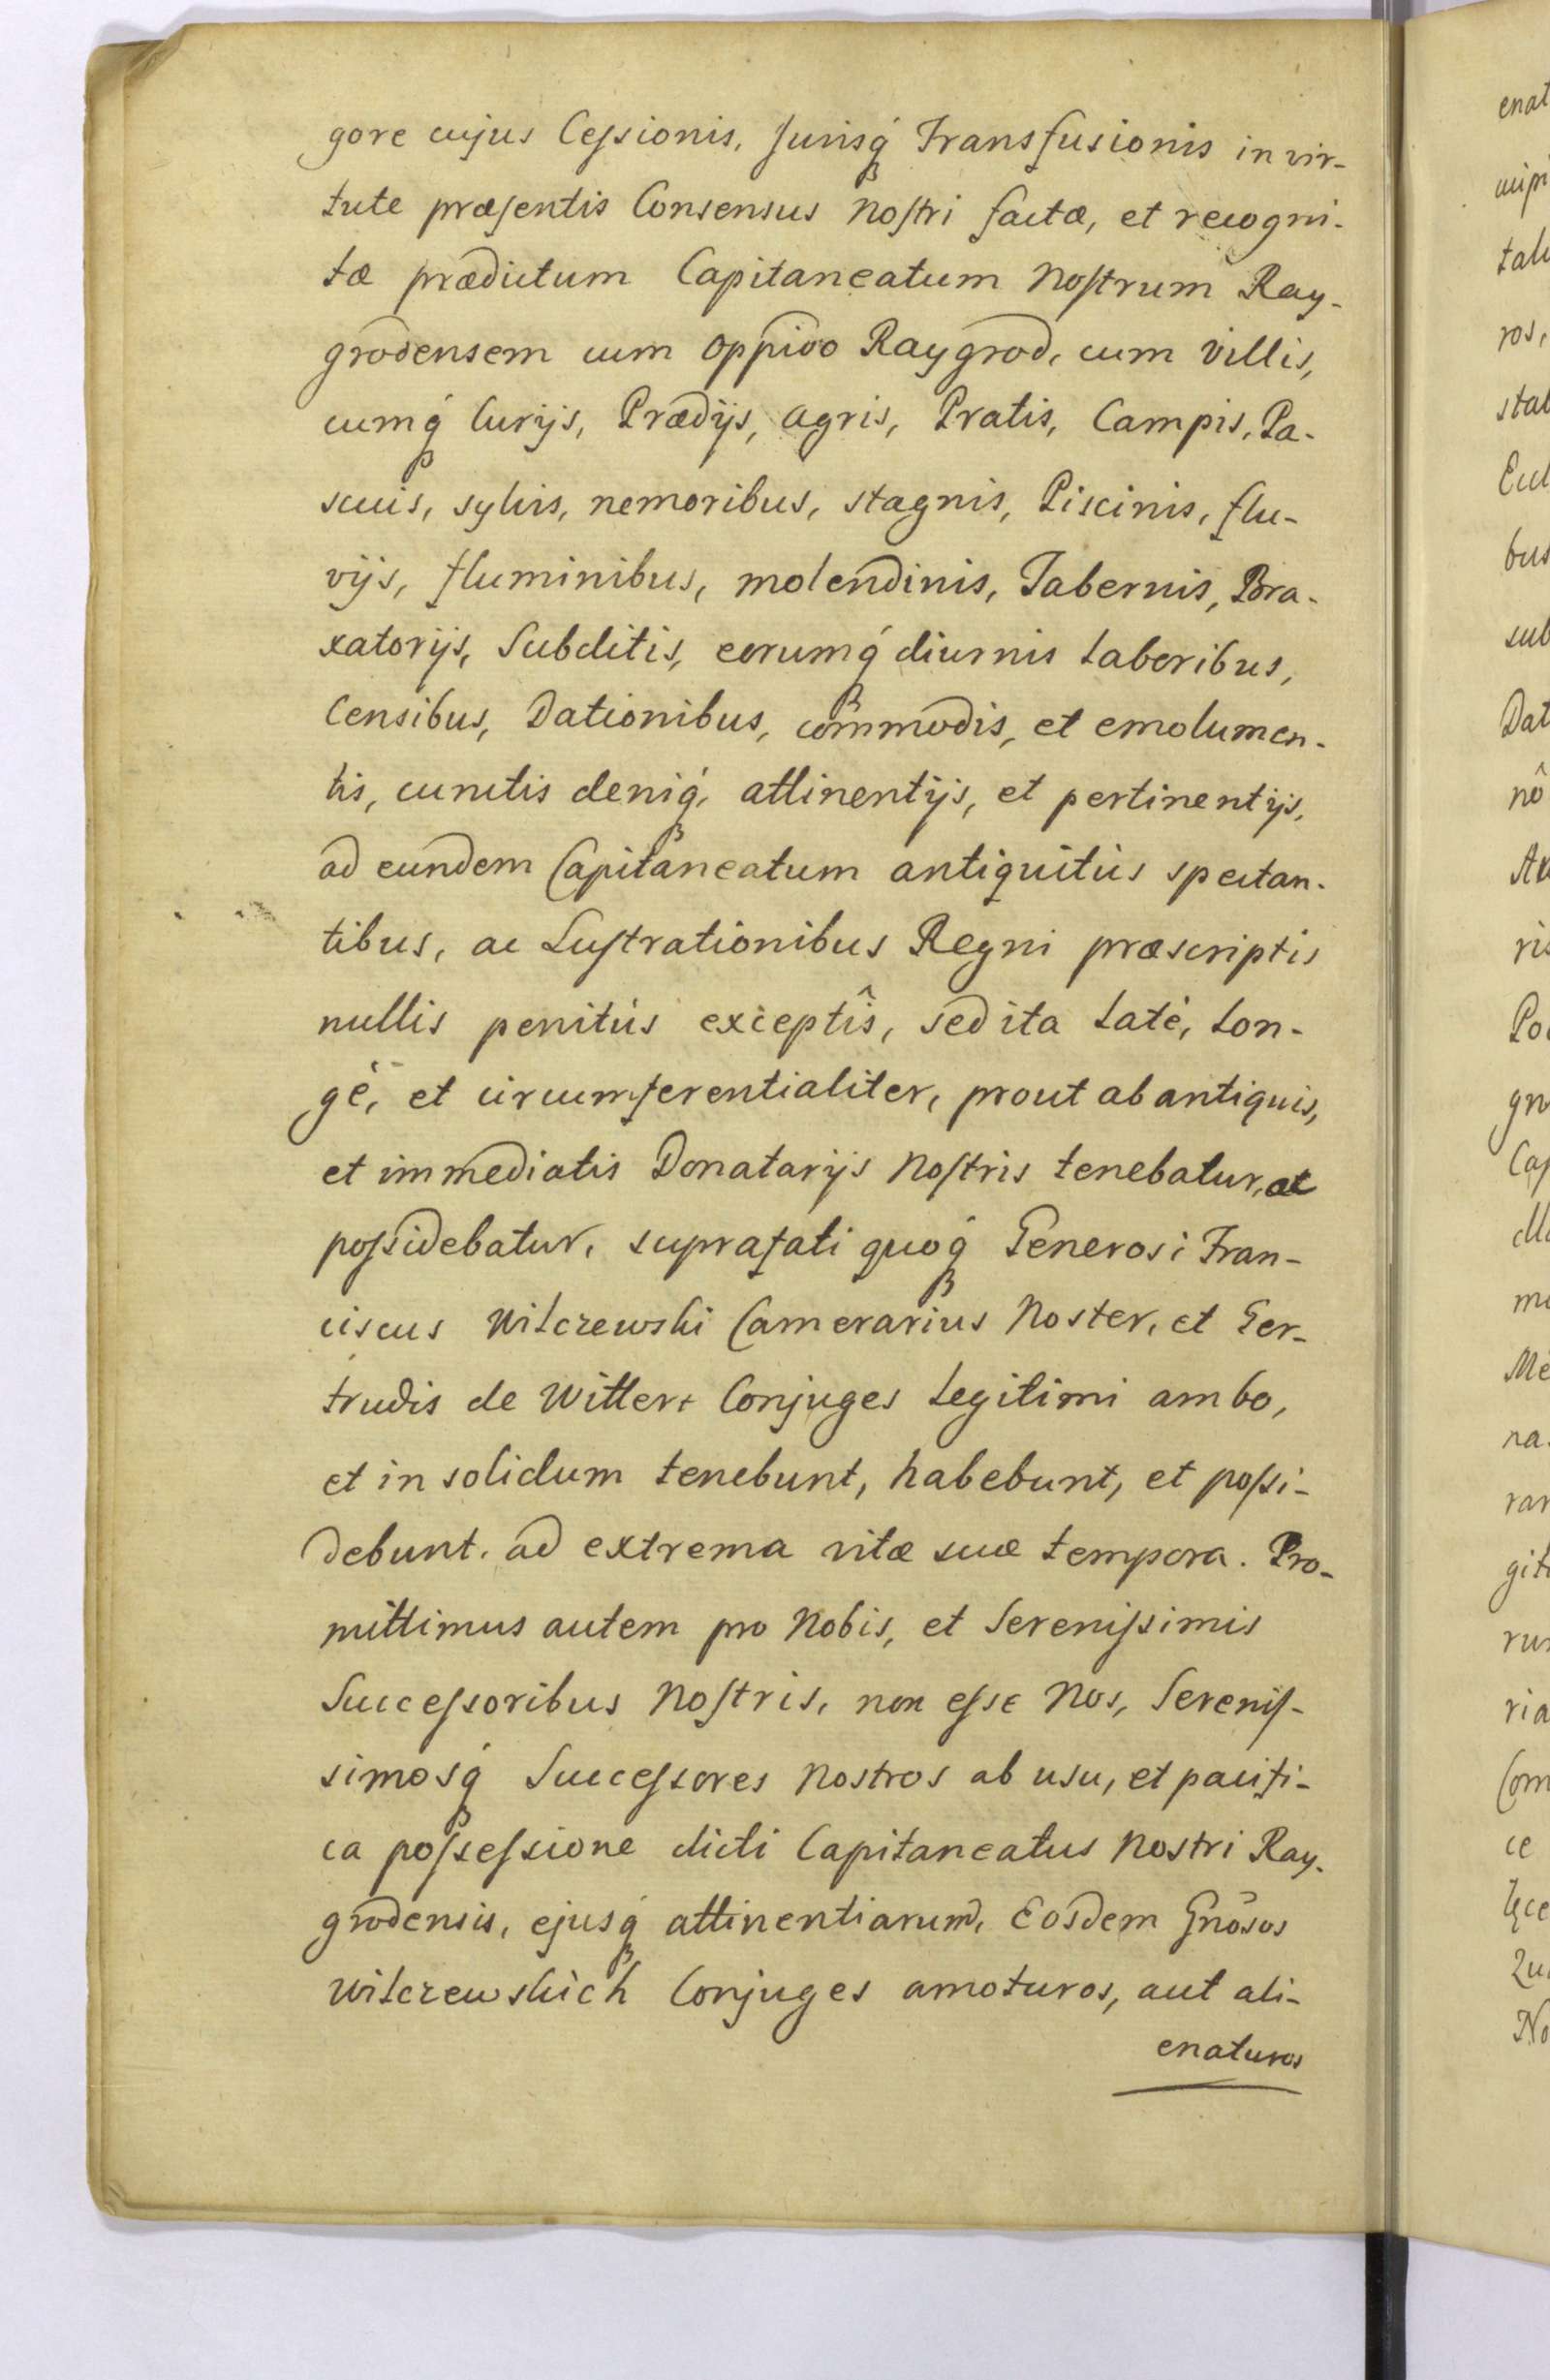 gore cujus Cessionis, Jurisq́ Transfusionis in vir-
tute præsentis Consensus Nostri factæ, et recogni-
tæ prædictum Capitaneatum Nostrum Ray-
grodensem cum oppido Raygrod, cum villis,
cumq́ Curijs, Prædijs, agris, Pratis, Campis, Pa-
scuis, sylvis, nemoribus, stagnis, Piscinis, flu-
vijs, fluminibus, molendinis, Tabernis, Bra-
xatorijs, Subditis, eorumq́ diurnis laboribus,
Censibus, Dationibus, commodis, et emolumen-
tis, cunctis deniq́, attinentijs, et pertinentijs,
ad eundem Capitaneatum antiquitùs spectan-
tibus, ac Lustrationibus Regni præscriptis
nullis penitùs exceptîs, sed ita latè, lon-
gè, et circumferentialiter, prout ab antiquis,
et immediatis Donatarijs Nostris tenebatur, ac
possidebatur, suprafati quoq́ Generosi Fran-
ciscus Wilczewski Camerarius Noster, et Ger-
trudis de Wittert Conjuges legitimi ambo,
et in solidum tenebunt, habebunt, et possi-
debunt, ad extrema vitæ suæ tempora. Pro-
mittimus autem pro Nobis, et Serenissimis
Successoribus Nostris, non esse Nos, Serenis-
simosq́ Successores Nostros ab usu, et pacifi-
ca possessione dicti Capitaneatus Nostri Ray-
grodensis, ejusq́ attinentiarum, Eosdem Gnōsos
Wilczewskich Conjuges amoturos, aut ali-
enaturos